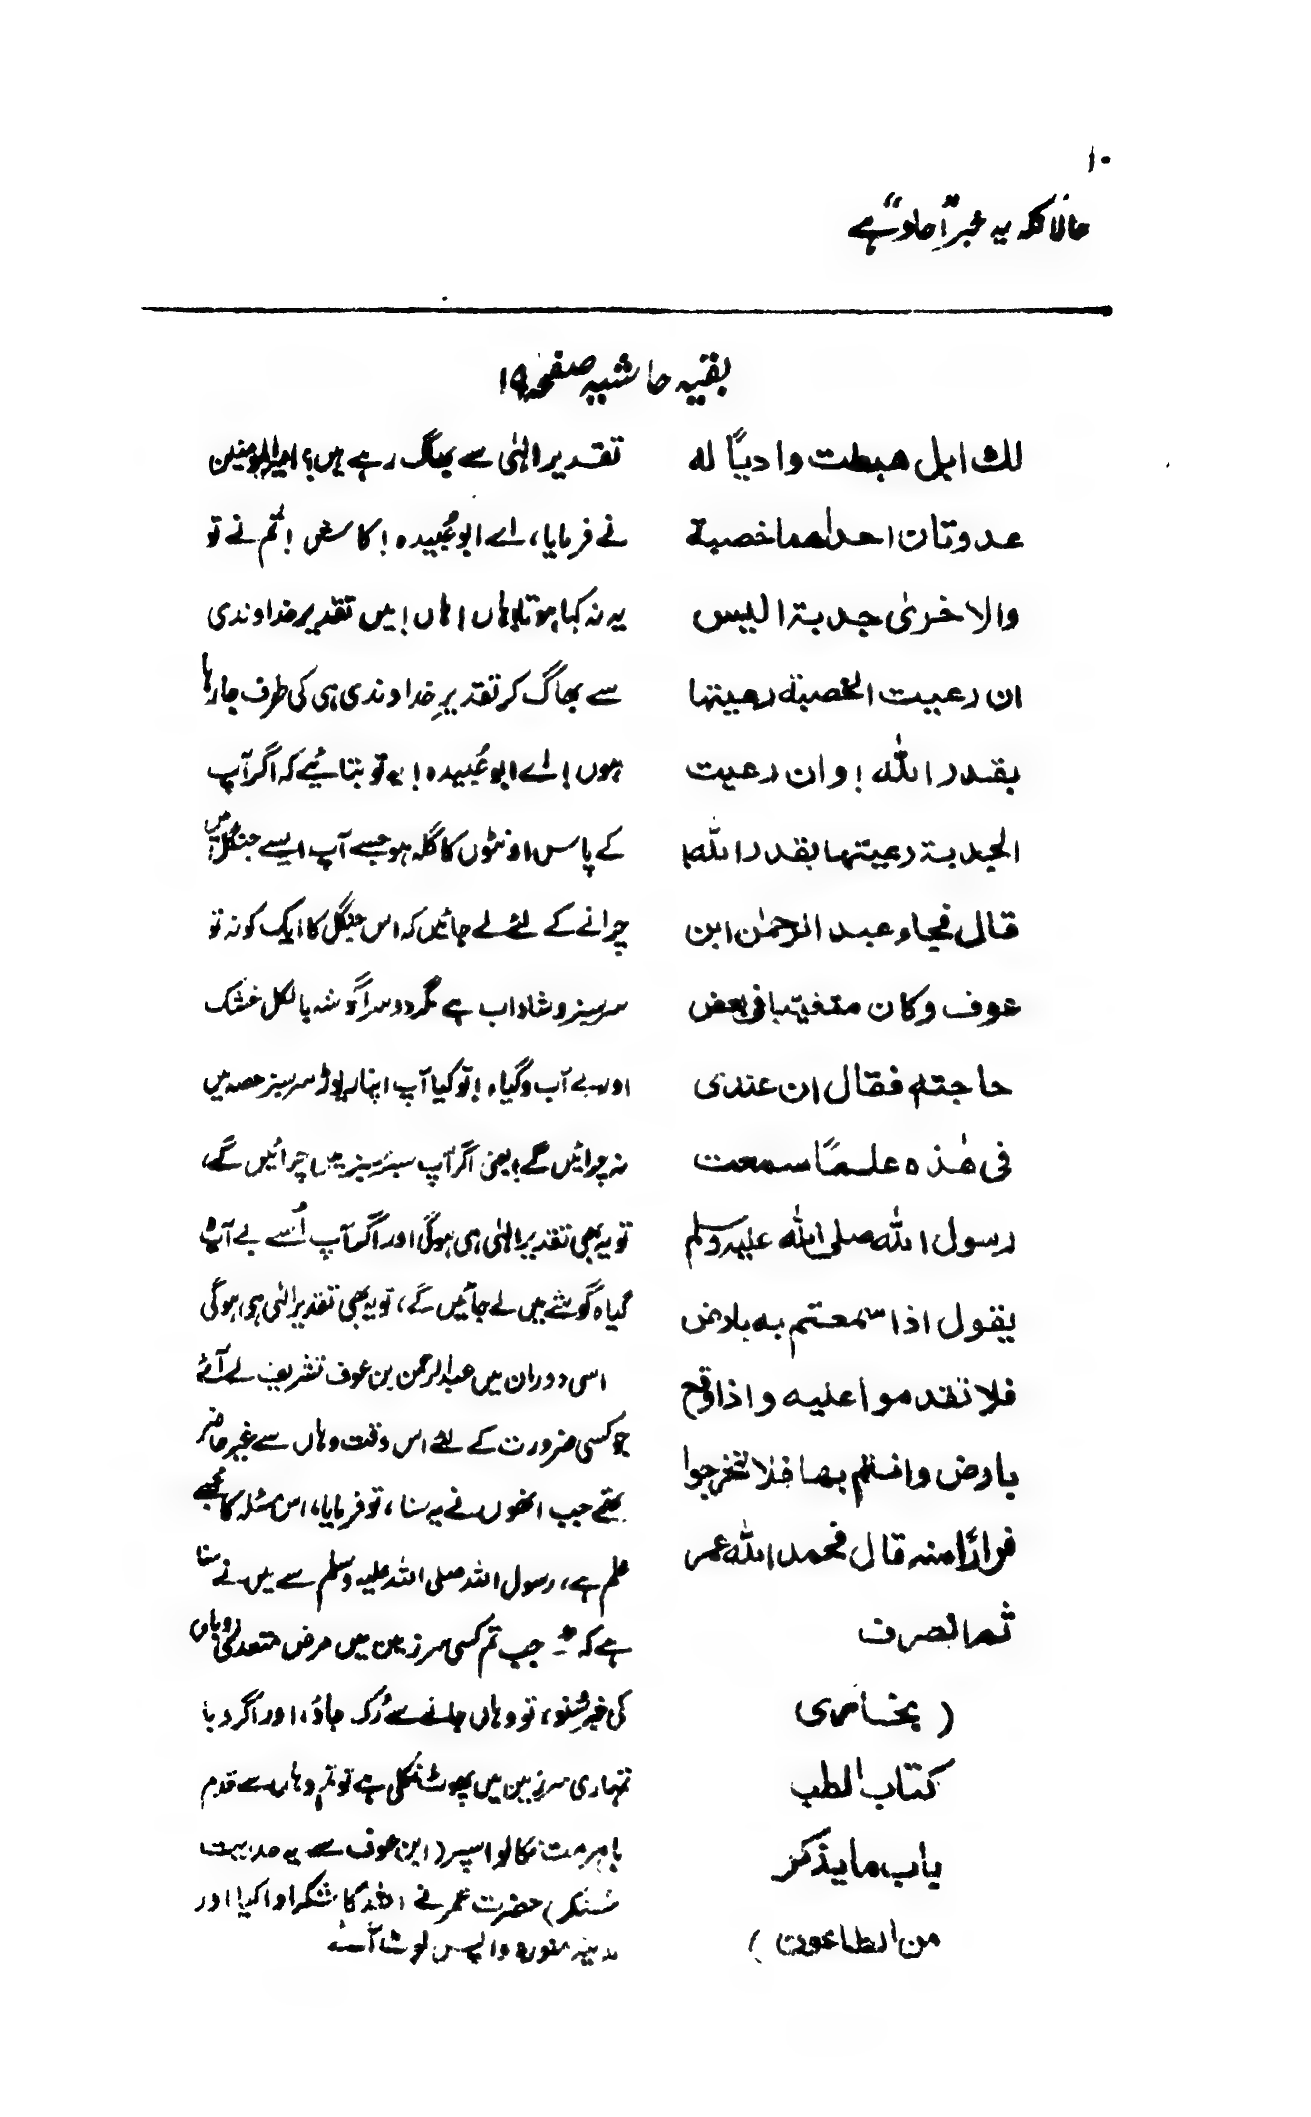 ۱۰
حالانکہ یہ خبر "آحاد" ہے
بقیہ حاشیہ صفحہ ۱۹
لك ابل هبطت واديًا له
عدوتان احداهما خصبة
والاخرىٰ جدبة اليس
ان رعيت الخصبة رعيتها
بقدر الله! وان رعيت
الجدبة رعيتها بقدر الله
قال فجاء عبد الرحمٰن ابن
عوف وكان متغيبا فى بعض
حاجته فقال ان عندى
فى هٰذه علمًا سمعت
رسول الله صلى الله عليه وسلم
يقول اذا سمعتم به بارض
فلا تقدموا عليه واذا وقع
بارض وانتم بها فلا تخرجوا
فرارًا منه قال فحمد الله عمر
ثم انصرف
(بخاری
کتاب الطب
باب ما يذكر
من الطاعون)
تقدیر الٰہی سے بھاگ رہے ہیں؟ امیر المومنین
نے فرمایا، اے ابو عُبیدہ! کاش! تُم نے تو
یہ نہ کہا ہوتا! ہاں! ہاں! میں تقدیر خداوندی
سے بھاگ کر تقدیرِ خداوندی ہی کی طرف جا رہا
ہوں! اے ابو عُبیدہ! یہ تو بتائیے کہ اگر آپ
کے پاس اونٹوں کا گلہ ہو جسے آپ ایسے جنگل میں
چرانے کے لئے لے جائیں کہ اس جنگل کا ایک کونہ تو
سرسبز و شاداب ہے مگر دوسرا گوشہ بالکل خشک
اور بے آب و گیاہ! تو کیا آپ اپنا ریوڑ سرسبز حصہ میں
نہ چرائیں گے؟ یعنی اگر آپ سبز سبز میں چرائیں گے،
تو یہ بھی تقدیر الٰہی ہی ہوگی اور اگر آپ اُسے بے آب و
گیاہ گوشے میں لے جائیں گے، تو یہ بھی تقدیر الٰہی ہی ہوگی
اسی دوران میں عبدالرحمن بن عوف تشریف لے آئے
جو کسی ضرورت کے لئے اس وقت وہاں سے غیر حاضر
تھے جب انھوں نے یہ سنا، تو فرمایا، اس مسئلہ کا مجھے
علم ہے، رسول اللہ صلی اللہ علیہ وسلم سے میں نے سنا
ہے کہ جب تم کسی سرزمین میں مرض متعدی (وبا)
کی خبر سُنو، تو وہاں جانے سے رُک جاؤ، اور اگر وبا
تمہاری سرزمین میں پھوٹ نکلی ہے تو تم وہاں سے قدم
باہر مت نکالو! سپر (ابن عوف سے یہ حدیث
سُنکر) حضرت عمر نے اللہ کا شکر ادا کیا اور
مدینہ منورہ واپس لوٹ آئے